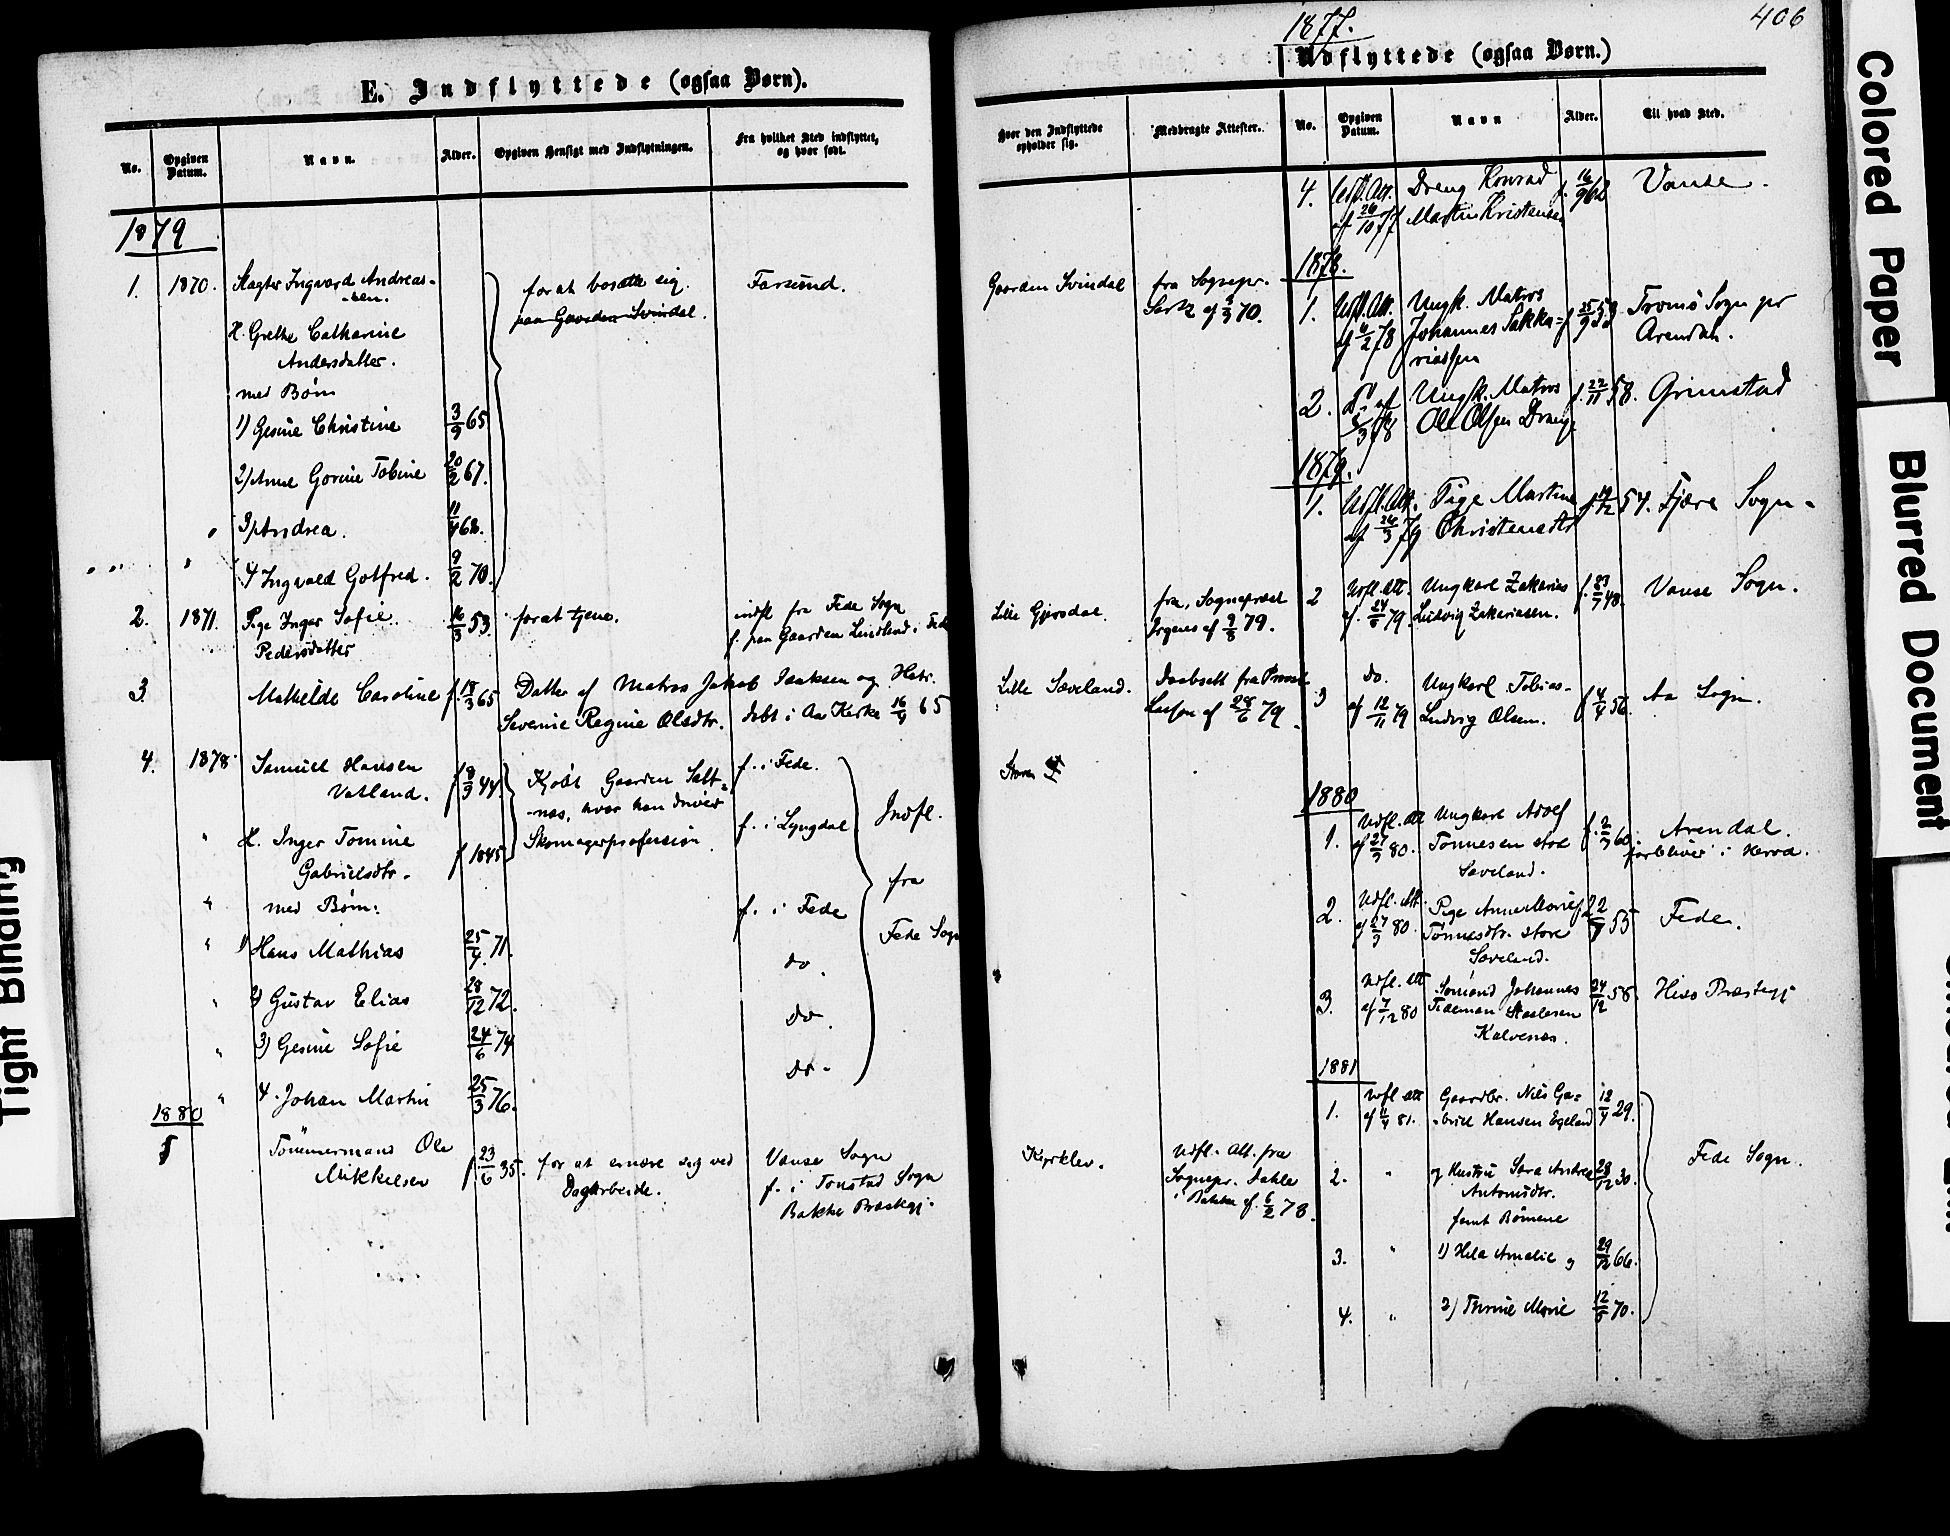 E. Indflyttede (ogsaa Børn).
No.
Opgiven Datum.
Navn.
Alder.
Opgiven Hensigt med Indflytningen.
Fra hvilket Sted indflyttet, og hvor født.
1879
1. 1870. Slagter Ingvard Andreas-
sen. for at bosætte sig Farsund.
paa Gaarden Svindal.
H. Grethe Catharine
Andersdatter.
med Børn
1) Gesine Christine 3/9 65
2) Anne Gorine Tobine 20/2 67.
3) Andrea. 11/4 68.
4 Ingvald Gotfred. 9/2 70.
2. 1871. Pige Inger Sofie 16/3 53. for at tjene. indfl fra Fede Sogn
Pedersdatter f. paa Gaarden Lindland i Fede
3. Mathilde Caroline f. 18/3 65 Datter af Matros Jakob Isaksen og Hstr.
Severine Regine Olsdtr. døbt i Aa Kirke 16/4 65
4. 1878. Samuel Hansen f 8/3 44. Kjøbt Gaarden Salt- f. i Fede.
Vatland. næs, hvor han driver
H. Inger Tomine f 1845 Skomagerprofession f. i Lyngdal Indfl.
Gabrielsdtr. fra
med Børn: f. i Fede Fede Sogn
1) Hans Mathias 25/4 71. do.
2) Gustav Elias 28/12 72. do.
3) Gesine Sofie 24/6 74 do.
4. Johan Martin 25/3 76.
1880
Tømmermand Ole f. 23/6 35. for at ernære sig ved Vanse Sogn
Mikkelsen Dagarbeide. f. i Tonstad Sogn
Bakke Præstegj.
1877.
406
Udflyttede (ogsaa Børn.)
Hvor den Indflyttede opholder sig.
Medbragte Attester.
No.
Opgiven Datum.
Navn
Alder.
Til hvad Sted.
4. Udfl. Att. Dreng Konrad f. 16/9 62 Vanse.
af 26/10 77 Martin Kristensen
1878.
Gaarden Svindal fra Sognepr.
1. Udfl. Att. Ungk. Matros Tromø Sogn pr
af 6/2 78 Johannes Sakka- Arendal.
riassen
2. Do af Ungk. Matros f. 22/11 58. Grimstad
Ole Olsen Drange
1879.
1. Udfl. Att. Pige Martine Fjære Sogn.
af 26/3 79 Christensdtr
Lille Gjersdal fra Sognepræst
af 9/8 79.
2 Udfl. Att. Ungkarl Zakarias f. 23/7 48. Vanse Sogn.
af 24/6 79. Ludvig Zakariasen.
Lille Sæveland. Daabsatt fra Provst
af 28/6 79.
3 do. Ungkarl Tobias- f 4/4 56. Aa Sogn.
af 12/11 79 Ludvig Olsen.
Store
1880
1. Udfl. Att Ungkarl Adolf f. 2/3 60. Arendal.
af 27/3 80. Tønnesen store forbliver i Herad.
Sæveland.
2. Udfl. Att. Pige Anne Marie Fede.
af 27/3 80. Tønnesdtr. store
Sæveland.
3. Udfl. Att Sømand Johannes 24/12 58. Hisø Præstegj
af 7/12 80 Tideman
Kalvenes.
1881
1. Udfl Att Gaardbr. Nils Ga- 12/4 29.
af 11/4 81. briel Hansen Egeland
Kirkelev. Udfl. Att. fra
Sognepr. Dahle
i Bakke af 6/2 78.
2. " og Hustru Sara Andrea 28/12 30. Fede Sogn.
Antonsdtr.
samt Børnene
3. " 1) Hela Amalie og 29/12 66.
4. " 2) Thrine Marie 12/5 70.
Colored Paper
Blurred Document
Tight Binding